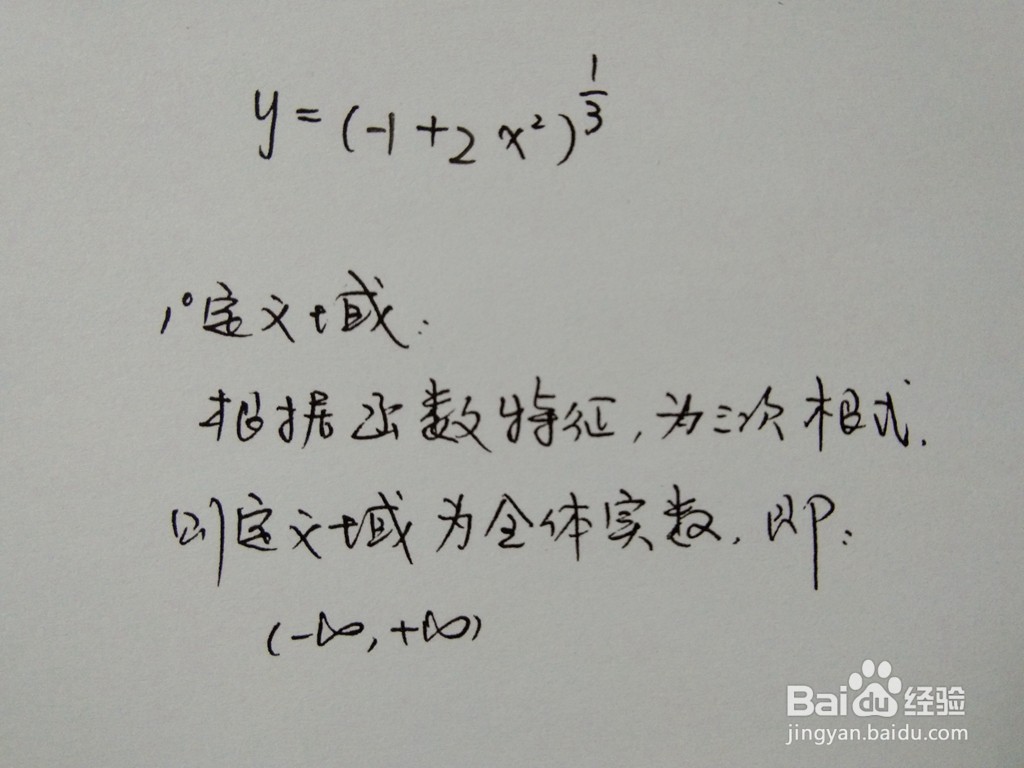 y = (-1+2x²)^(1/3)
1°定义域:
根据函数特征,为三次根式.
则定义域为全体实数,即:
(-∞,+∞)
Baidu经验
jingyan.baidu.com